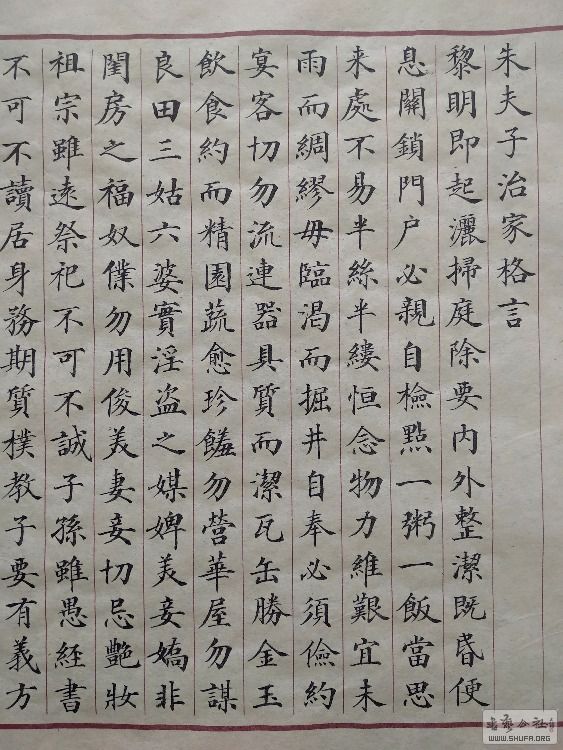 朱夫子治家格言
黎明即起灑掃庭除要內外整潔既昏便
息關鎖門户必親自檢點一粥一飯當思
来處不易半絲半縷恒念物力維艱宜未
雨而綢繆毋臨渴而掘井自奉必須儉約
宴客切勿流連器具質而潔瓦缶勝金玉
飲食約而精園蔬愈珍饈勿營華屋勿謀
良田三姑六婆實淫盜之媒婢美妾嬌非
閨房之福奴僕勿用俊美妻妾切忌艷妝
祖宗雖遠祭祀不可不誠子孫雖愚經書
不可不讀居身務期質樸教子要有義方
WWW.SHUFA.ORG